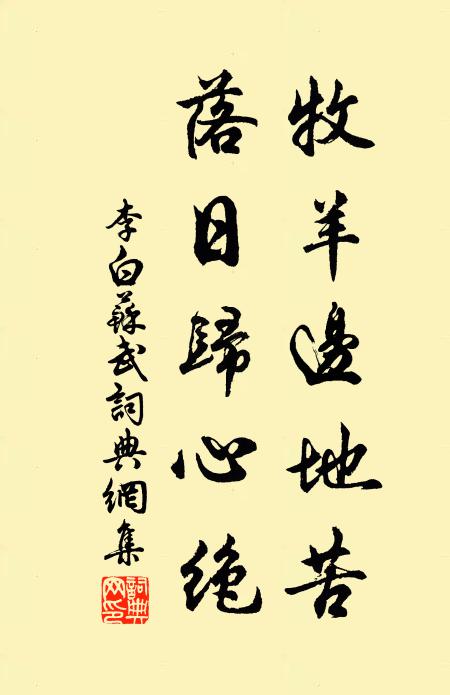 牧羊邊地苦
落日歸心絕
李白蘇武詞典網集
詞典網印